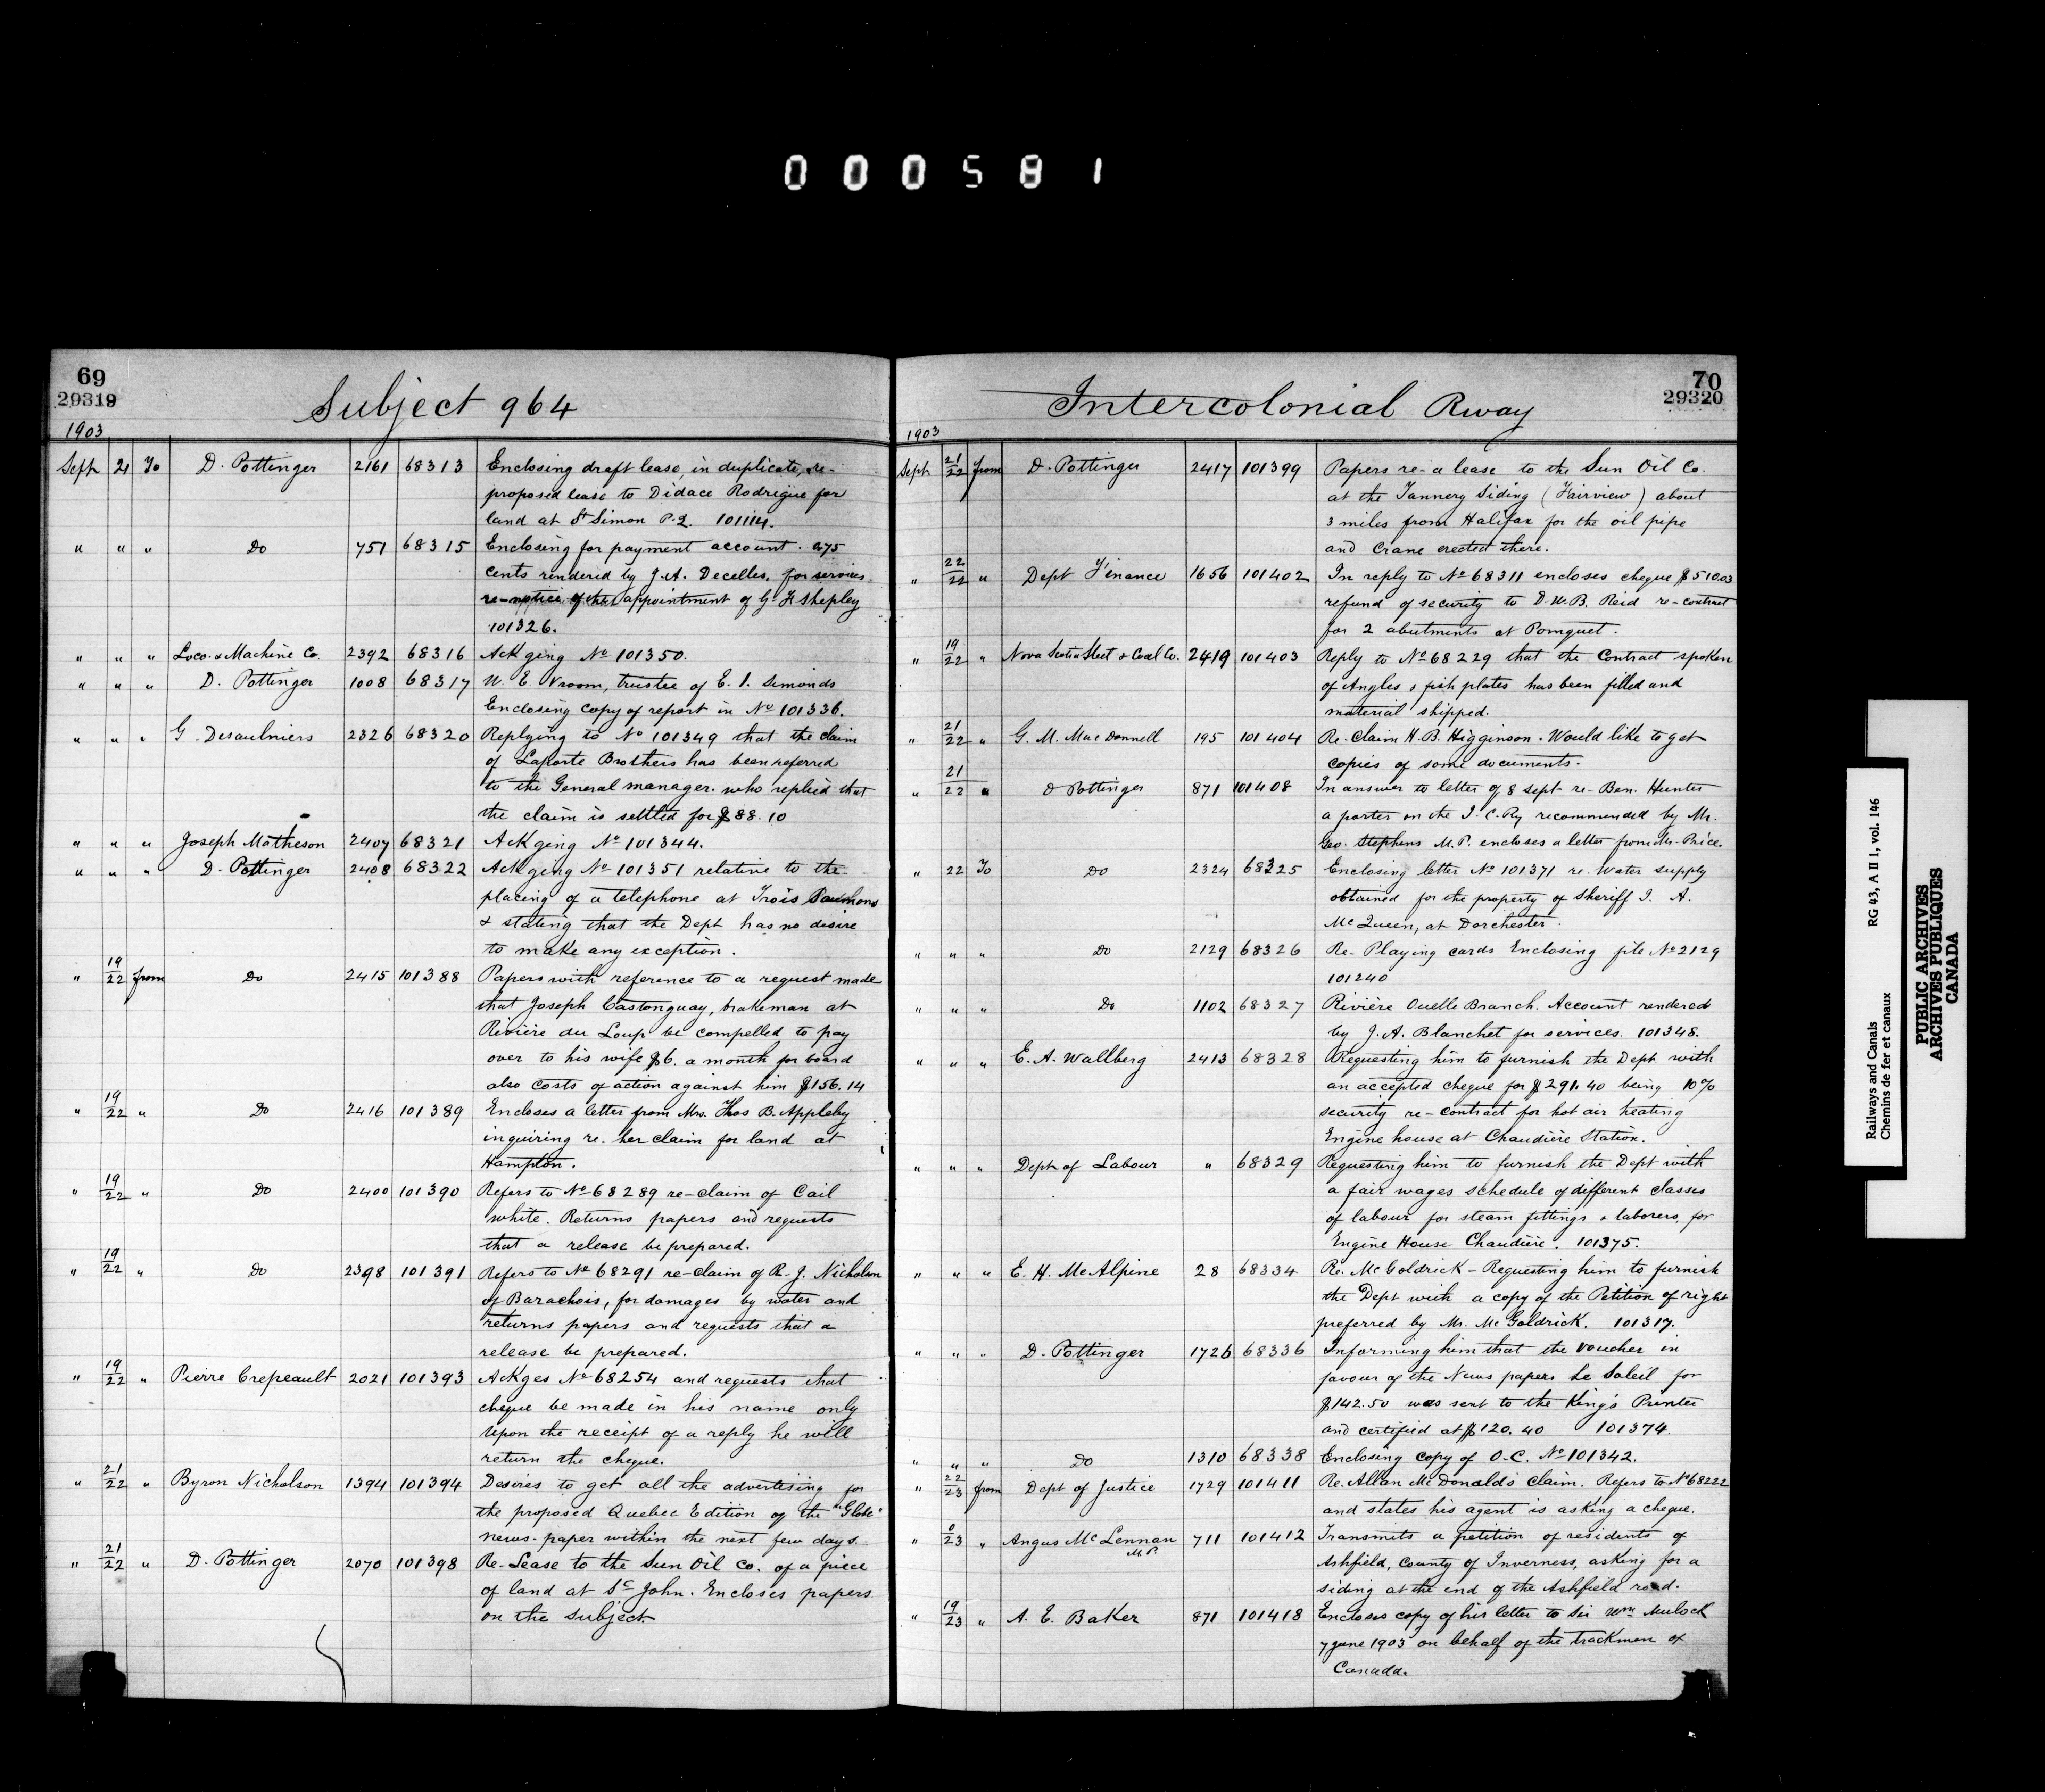 000581
69
29319
Subject 964
1903
Sept 21 To D. Pottinger 2161 68313 Enclosing draft lease, in duplicate, re-
proposed lease to Didace Rodrigue for
land at St Simon P.Q. 101114.
" " " Do 751 68315 Enclosing for payment account. 275
cents rendered by J.A. Decelles, for services
re-notice of the appointment of G. F. Shepley
101326.
" " " Loco. & Machine Co. 2392 68316 Ackging No 101350.
" " " D. Pottinger 1008 68317 W. E. Vroom, trustee of E. I. Simonds
Enclosing copy of report in No 101336.
" " " G. Desaulniers 2326 68320 Replying to No 101349 that the claim
of Laporte Brothers has been referred
to the General manager. who replied that
the claim is settled for $88.10
" " " Joseph Matheson 2407 68321 Ackging No 101344.
" " " D. Pottinger 2408 68322 Ackging No 101351 relative to the
placing of a telephone at Trois Saumons
& stating that the Dept has no desire
to make any exception.
" 19/22 from Do 2415 101388 Papers with reference to a request made
that Joseph Castonguay, brakeman at
Rivière du Loup be compelled to pay
over to his wife $6. a month for board
also costs of action against him $156.14
" 19/22 " Do 2416 101389 Encloses a letter from Mrs. Thos B. Appleby
inquiring re. her claim for land at
Hampton.
" 19/22 " Do 2400 101390 Refers to No 68289 re-claim of Cail
White. Returns papers and requests
that a release be prepared.
" 19/22 " Do 2398 101391 Refers to No 68291 re-claim of R. J. Nicholson
of Barachois, for damages by water and
returns papers and requests that a
release be prepared.
" 19/22 " Pierre Crepeault 2021 101393 Ackges No 68254 and requests that
cheque be made in his name only
Upon the receipt of a reply he will
return the cheque.
" 21/22 " Byron Nicholson 1394 101394 Desires to get all the advertising for
the proposed Quebec Edition of the "Globe"
news-paper within the next few days.
" 21/22 " D. Pottinger 2070 101398 Re-Lease to the Sun Oil Co. of a piece
of land at St John. Encloses papers
on the subject
70
29320
Intercolonial Rway
1903
Sept 21/22 from D. Pottinger 2417 101399 Papers re-a lease to the Sun Oil Co.
at the Tannery Siding (Fairview) about
3 miles from Halifax for the oil pipe
and Crane erected there.
" 22/22 " Dept Finance 1656 101402 In reply to No 68311 encloses cheque $510.03
refund of security to D. W. B. Reid re-contract
for 2 abutments at Pomquet.
" 19/22 " Nova Scotia Steel & Coal Co. 2419 101403 Reply to No 68229 that the Contract spoken
of Angles & fish plates has been filled and
material shipped.
" 21/22 " G. M. Mac Donnell 195 101404 Re-Claim H. B. Higginson. Would like to get
copies of some documents.
" 21/22 " D Pottinger 871 101408 In answer to letter of 8 Sept re-Ben. Hunter
a porter on the I. C. Ry recommended by Mr.
Geo. Stephens M.P. encloses a letter from Mr. Price.
" 22 To Do 2324 68325 Enclosing letter No 101371 re. Water supply
obtained for the property of Sheriff J. A.
McQueen, at Dorchester.
" " " Do 2129 68326 Re-Playing cards Enclosing file No 2129
101240
" " " Do 1102 68327 Rivière Ouelle Branch. Account rendered
by J. A. Blanchet for services. 101348.
" " " E. A. Wallberg 2413 68328 Requesting him to furnish the Dept with
an accepted cheque for $291.40 being 10%
security re-contract for hot air heating
Engine house at Chaudière Station.
" " " Dept of Labour " 68329 Requesting him to furnish the Dept with
a fair wages schedule of different classes
of labour for steam fittings & laborers, for
Engine House Chaudière. 101375.
" " " E. H. McAlpine 28 68334 Re. McGoldrick - Requesting him to furnish
the Dept with a copy of the Petition of right
preferred by Mr. McGoldrick. 101317.
" " " D. Pottinger 1726 68336 Informing him that the voucher in
favour of the News papers Le Soleil for
$142.50 was sent to the King's Printer
and certified at $120.40 101374
" " " Do 1310 68338 Enclosing copy of O.C. No 101342.
" 22/23 from Dept of Justice 1729 101411 Re. Allan McDonald's claim. Refers to No 68222
and states his agent is asking a cheque.
" 0/23 " Angus McLennan M.P. 711 101412 Transmits a petition of residents of
Ashfield, County of Inverness, asking for a
siding at the end of the Ashfield road.
" 19/23 " A. E. Baker 871 101418 Encloses copy of his letter to Sir Wm Mulock
7 June 1903 on behalf of the trackmen of
Canada.
Railways and Canals RG 43, A II 1, vol. 146
Chemins de fer et canaux
PUBLIC ARCHIVES
ARCHIVES PUBLIQUES
CANADA